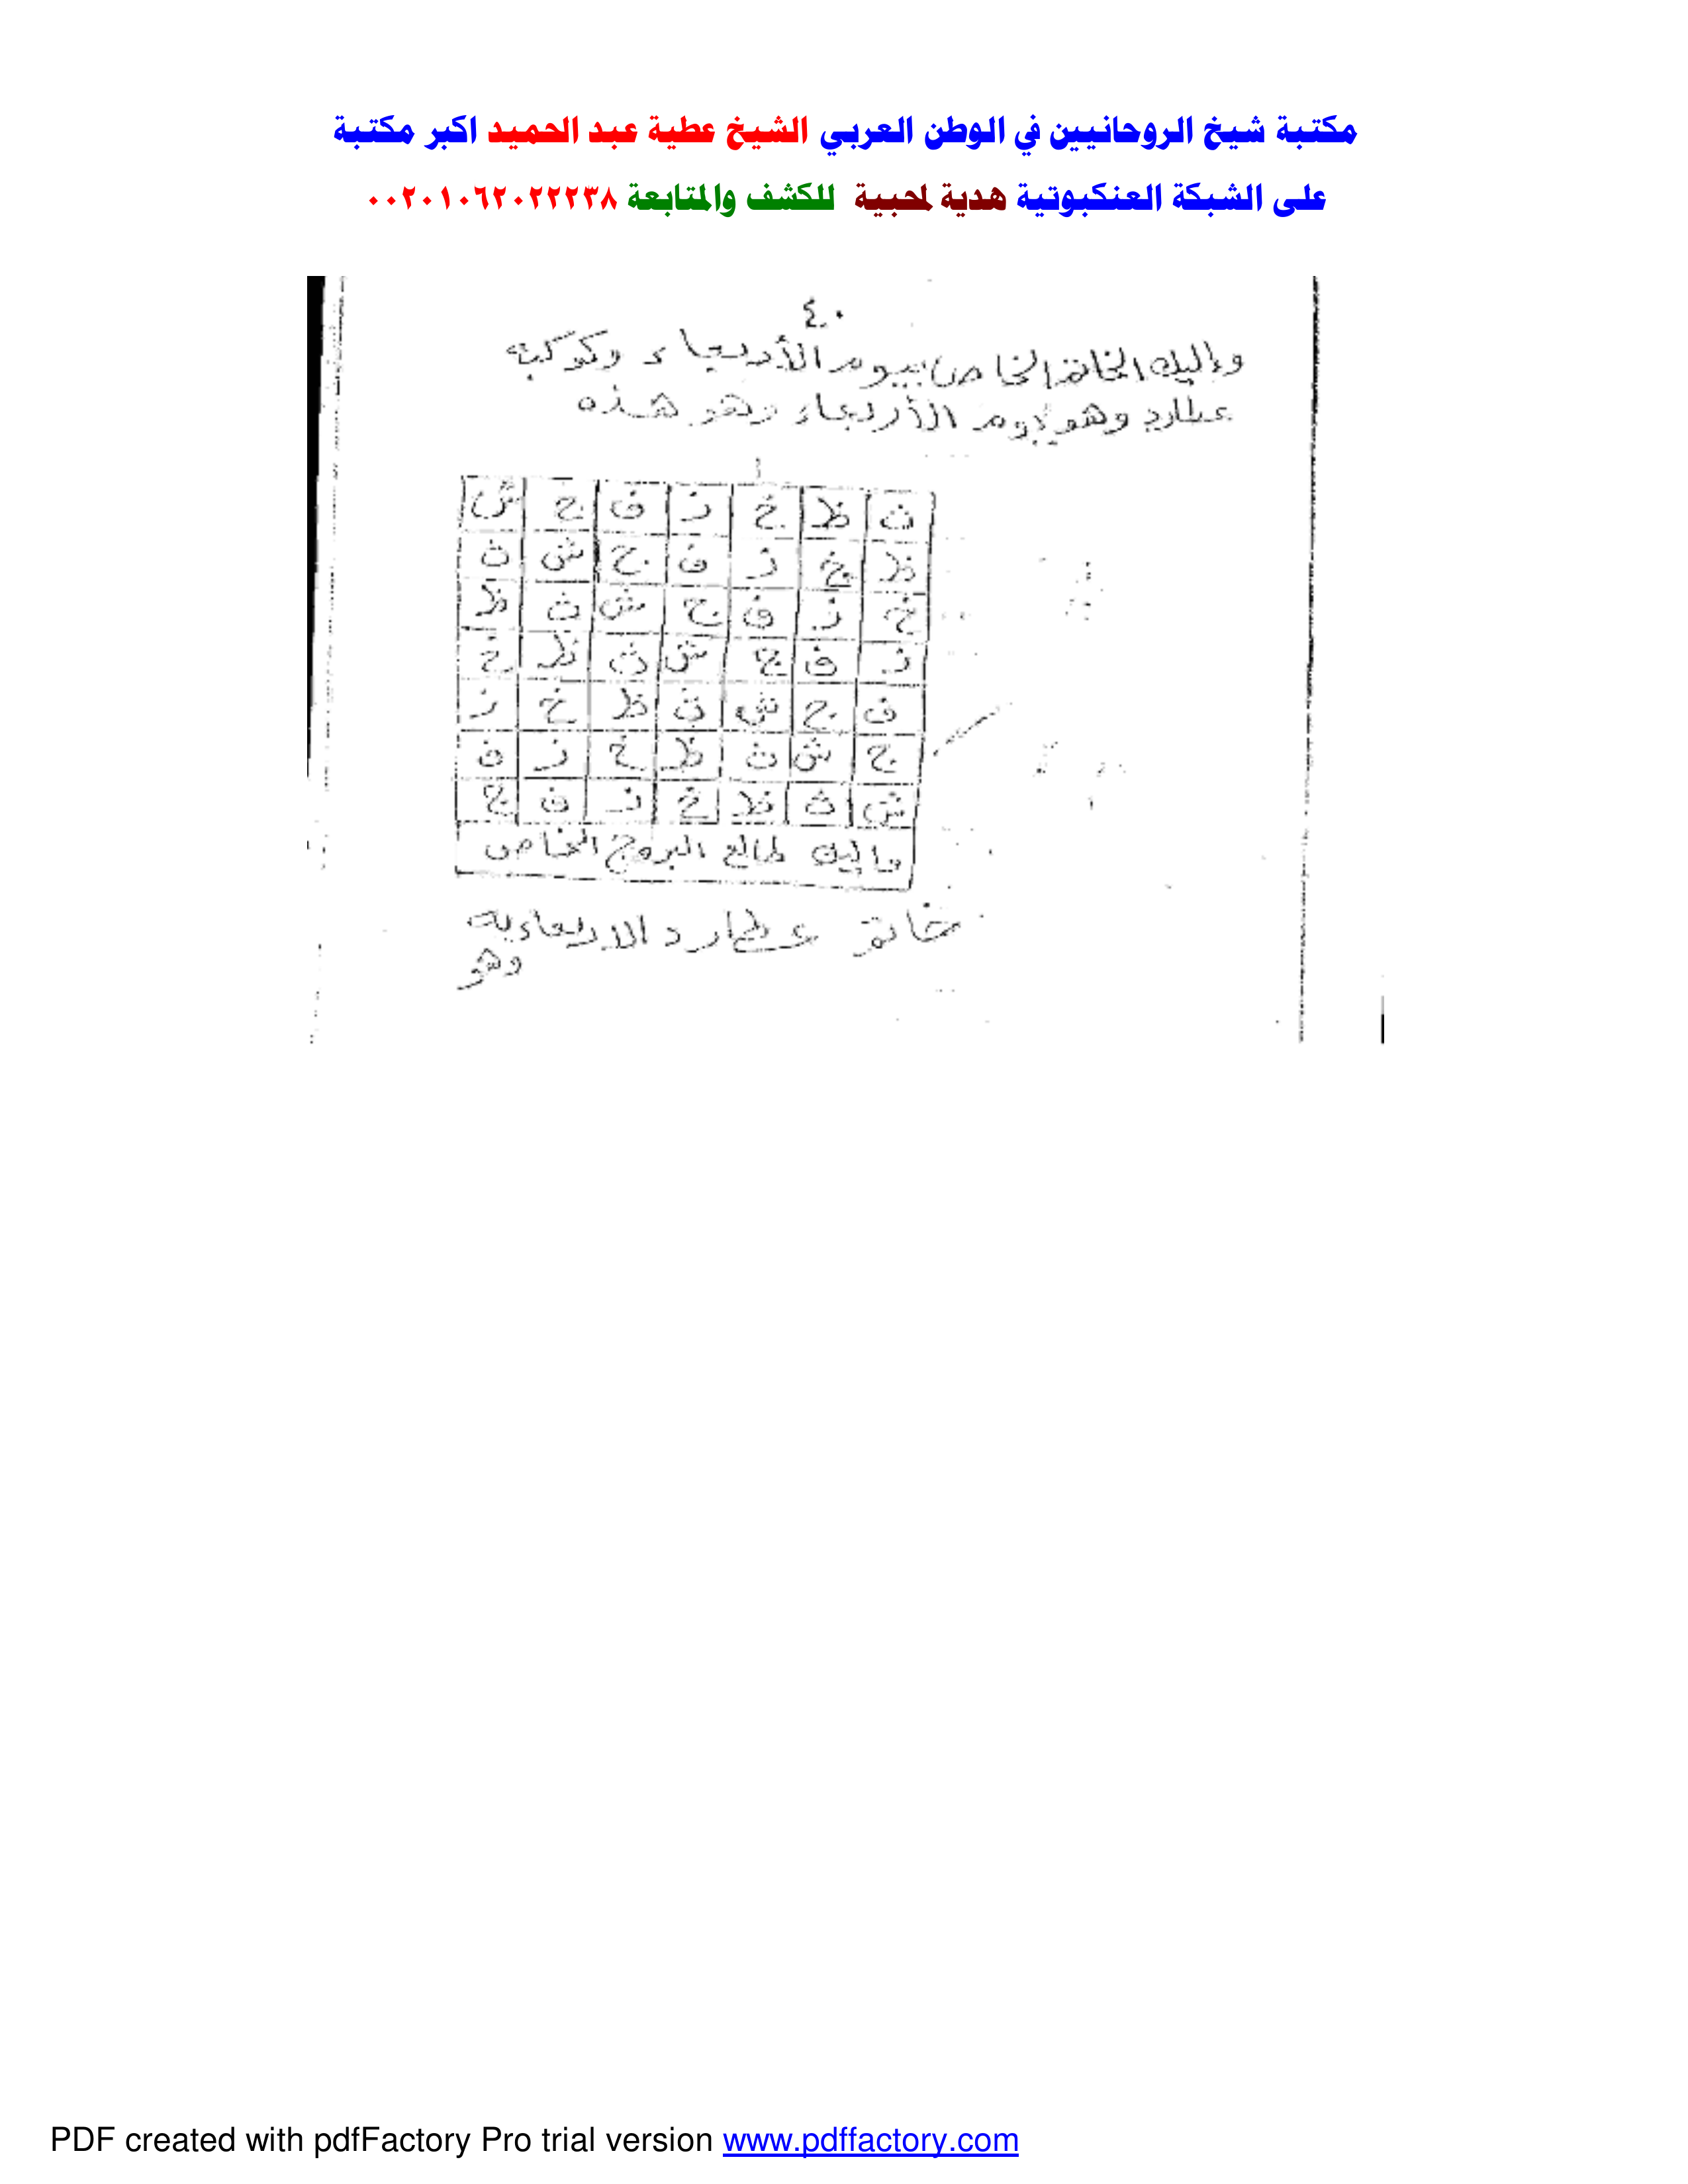 مكتبة شيخ الروحانيين في الوطن العربي الشيخ عطية عبد الحميد اكبر مكتبة
على الشبكة العنكبوتية هدية لمحبية للكشف والمتابعة ٠٠٢٠١٠٦٢٠٢٢٢٣٨
٤٠
وإليك الخاتم الخاص بيوم الأربعاء وكوكبه
عطارد وهو يوم الأربعاء وهو هذه
ث ظ خ ز ف ج ش
ظ خ ز ف ج ش ث
خ ز ف ج ش ث ظ
ز ف ج ش ث ظ خ
ف ج ش ث ظ خ ز
ج ش ث ظ خ ز ف
ش ث ظ خ ز ف ج
واليك طالع البروج الخاص
خاتم عطارد الاربعاء به
وهو
PDF created with pdfFactory Pro trial version www.pdffactory.com